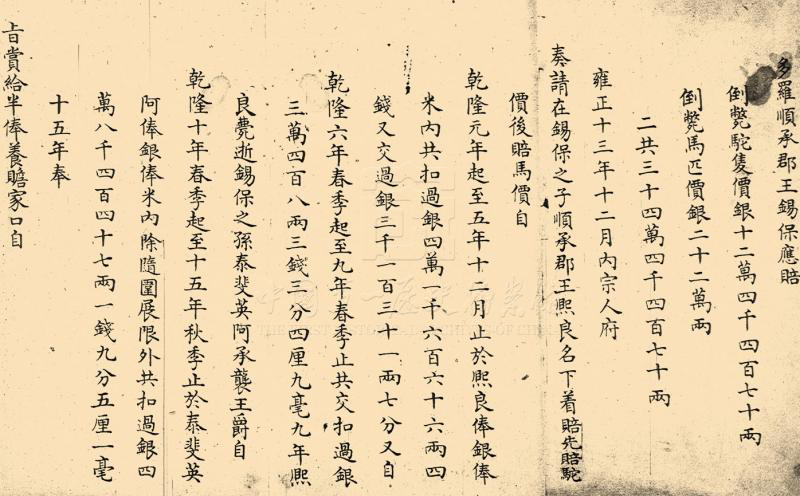 多羅順承郡王錫保應賠
倒斃駝隻價銀十二萬四千四百七十兩
倒斃馬匹價銀二十二萬兩
二共三十四萬四千四百七十兩
雍正十三年十二月內宗人府
奏請在錫保之子順承郡王熙良名下着賠先賠駝
價後賠馬價自
乾隆元年起至五年十二月止於熙良俸銀俸
米內共扣過銀四萬一千六百六十六兩四
錢又交過銀三千一百三十一兩七分又自
乾隆六年春季起至九年春季止共交扣過銀
三萬四百八兩三錢三分四厘九毫九年熙
良薨逝錫保之孫泰斐英阿承襲王爵自
乾隆十年春季起至十五年秋季止於泰斐英
阿俸銀俸米內除隨圍展限外共扣過銀四
萬八千四百四十七兩一錢九分五厘一毫
十五年奉
旨賞給半俸養贍家口自